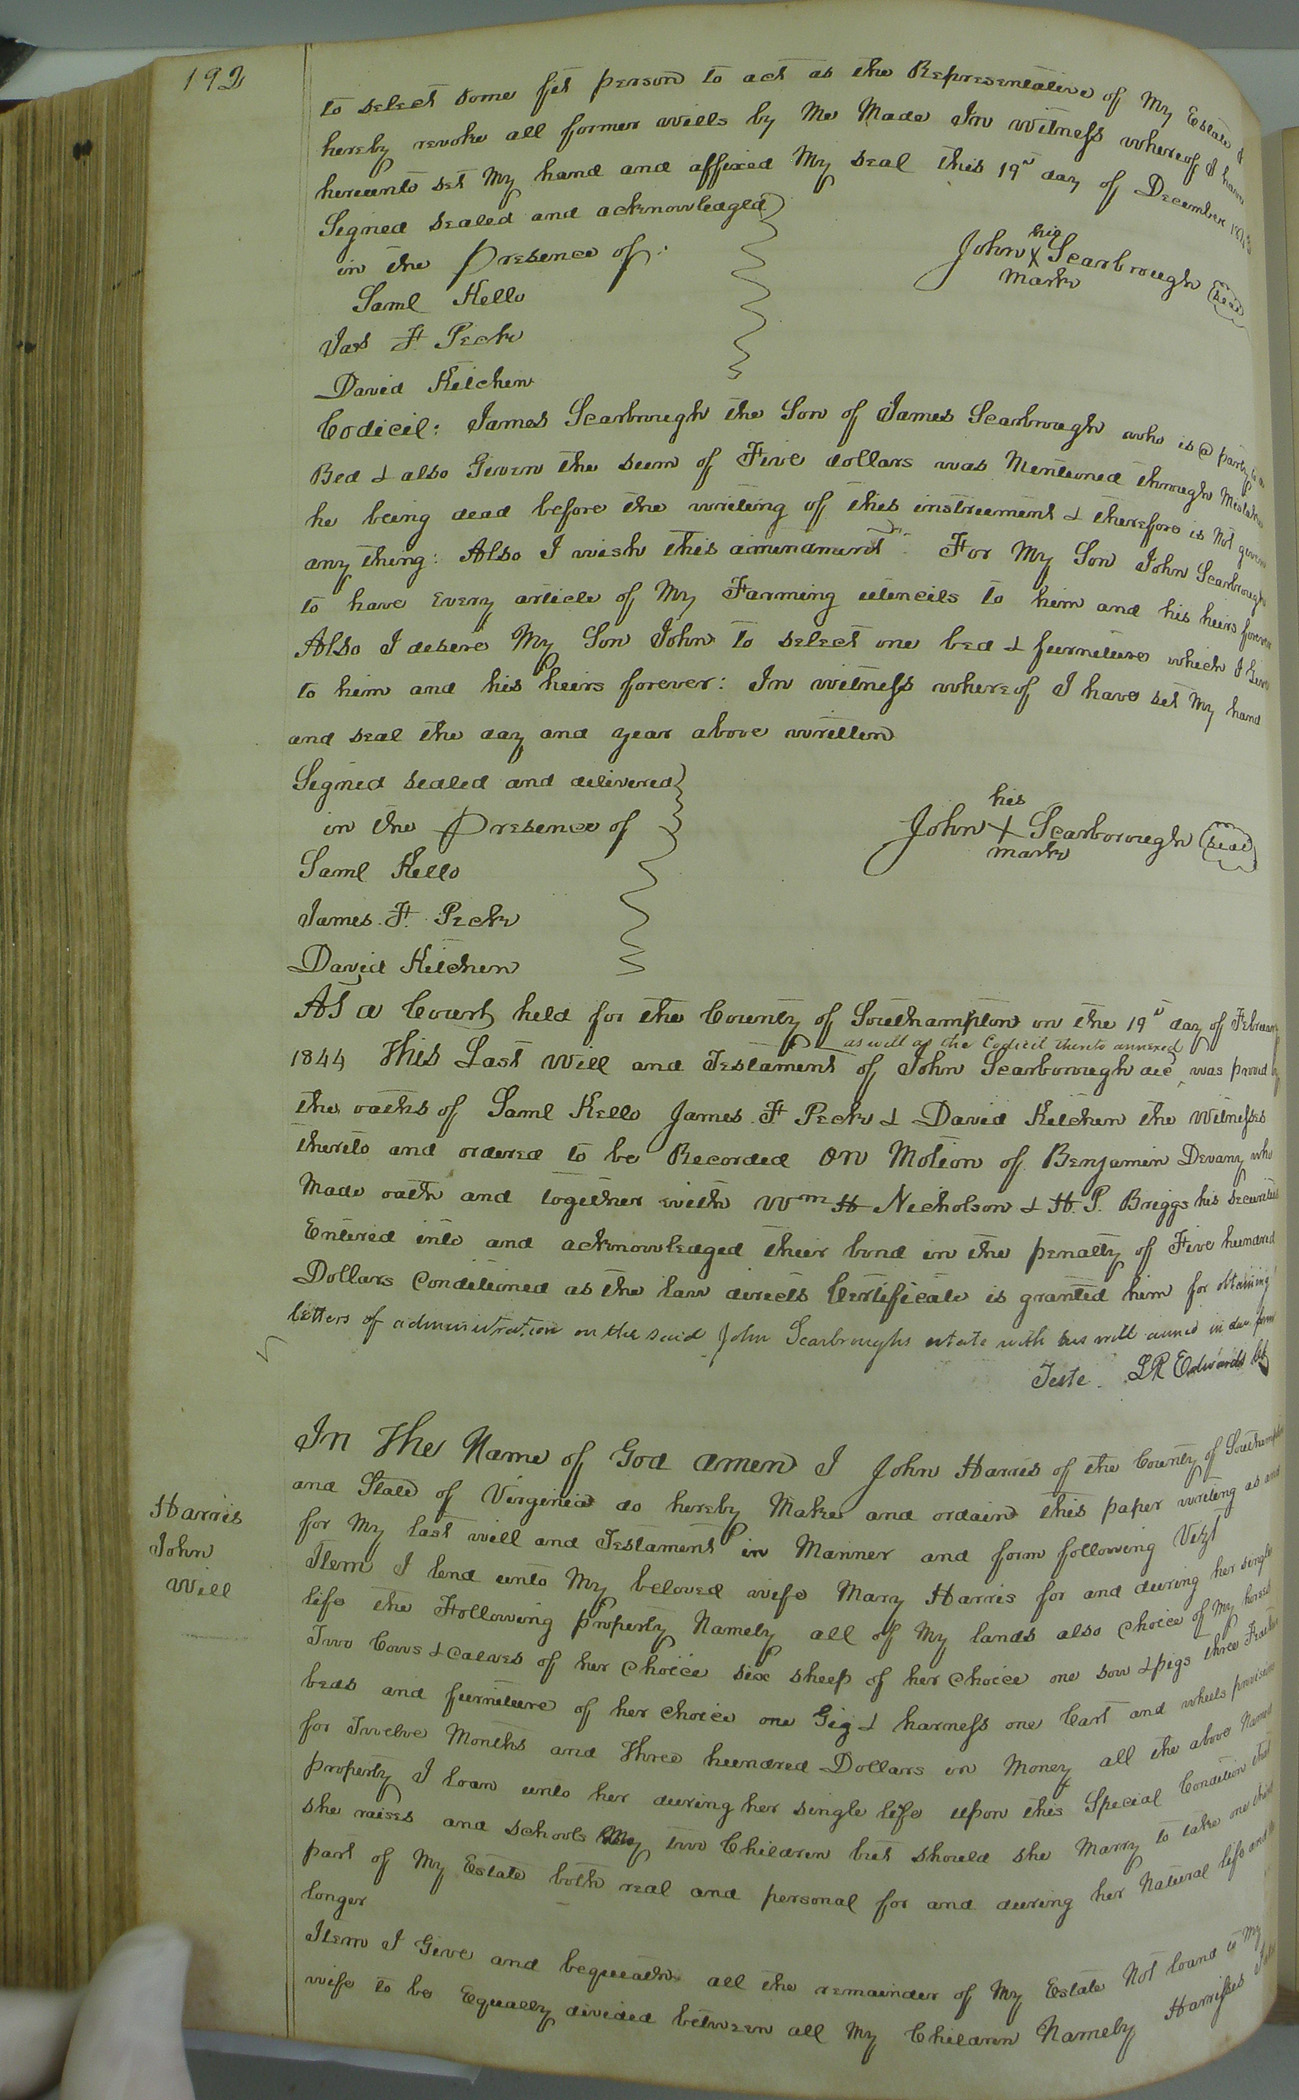 192
to select some fit person to act as the Representative of My Estate I
hereby revoke all former wills by Me Made In Witness whereof I have
hereunto set My hand and affixed My seal this 19th day of December
Signed sealed and acknowledged
in the Presence of:
his
John X Scarbrough Seal
mark
Saml Kello
Jas F Peck
David Kitchen
Codicil: James Scarbrough the Son of James Scarbrough who is a party to a
Bed & also Given the sum of Five dollars was Mentioned through Mistake
he being dead before the writing of this instrument & therefore is Not given
any thing: Also I wish this amendment For My Son John Scarbrough
to have Every article of My Farming utencils to him and his heirs forever
Also I desire My Son John to select one bed & furniture which I Give
to him and his heirs forever: In witness whereof I have set My hand
and seal the day and year above written
Signed sealed and delivered
in the Presence of
his
John + Scarborough Seal
mark
Saml Kello
James F. Peck
David Kitchen
At a Court held for the County of Southampton on the 19th day of February
as well as the Codicil thereto annexed
1844 This Last Will and Testament of John Scarborough dec was proved by
the oaths of Saml Kello James F Peck & David Kitchen the Witnesses
thereto and ordered to be Recorded On Motion of Benjamin Devany who
Made oath and together with Wm H Nicholson & H. P. Briggs his securities
Entered into and acknowledged their bond in the penalty of Five hundred
Dollars Conditioned as the law directs Certificate is granted him for obtaining
letters of administration on the said John Scarbroughs estate with his will annexed in due form
Teste L R Edwards Clk
Harris
John
Will
In The Name of God Amen I John Harris of the County of Southampton
and State of Virginia do hereby Make and ordain this paper writing as and
for My last will and Testament in Manner and form following Vizt
Item I lend unto My beloved wife Mary Harris for and during her single
life the Following property Namely all of My lands also choice of My horses
Two Cows & calves of her choice six sheep of her choice one sow & pigs three Feather
beds and furniture of her choice one Gig & harness one Cart and wheels provisions
for Twelve Months and Three hundred Dollars in Money all the above Named
property I loan unto her during her single life upon this Special Condition that
she raises and schools My two Children but should she Marry to take one third
part of My Estate both real and personal for and during her Natural life and no
longer
Item I Give and bequeath all the remainder of My Estate Not loand to My
wife to be Equally divided between all My Children Namely Harrisses